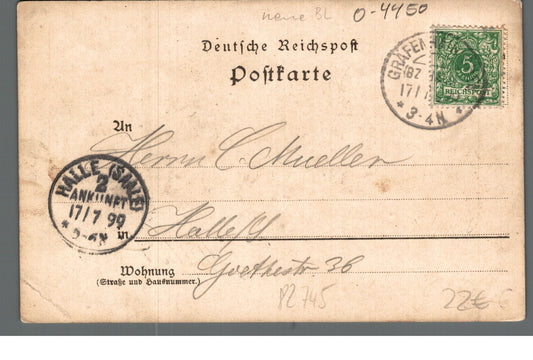 neue BL O-4450
Deutsche Reichspost
Postkarte
GRÄFENHAIN
(BZ
17/7
* 3-4N *
5
REICHSPOST
An
Herrn C. Mueller
HALLE (SAALE)
2
ANKUNFT
17/7 99
* 5-6N
in Halle/S
Wohnung Goethestr 36
(Straße und Hausnummer.)
PZ 745
22€